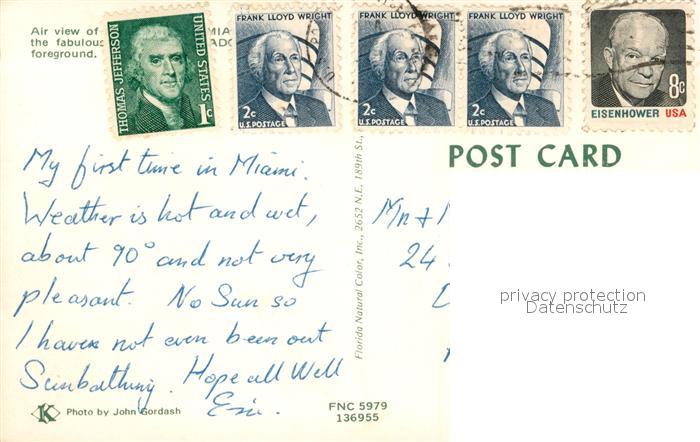 Air view of MIA
the fabulous ADO
foreground.
THOMAS JEFFERSON
UNITED STATES
1c
FRANK LLOYD WRIGHT
2c
U.S. POSTAGE
FRANK LLOYD WRIGHT
2c
U.S. POSTAGE
FRANK LLOYD WRIGHT
2c
U.S. POSTAGE
8c
EISENHOWER USA
POST CARD
My first time in Miami.
Weather is hot and wet,
about 90° and not very
pleasant. No Sun so
I haven not even been out
Sunbathing. Hope all Well
Florida Natural Color, Inc., 2652 N.E. 189th St.,
24
privacy protection
Datenschutz
K Photo by John Gordash
FNC 5979
136955